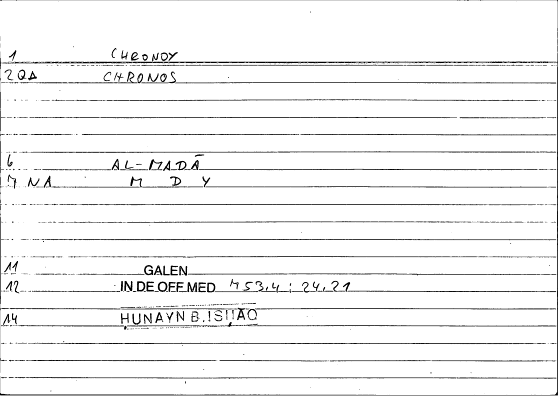 1 CHRONOY
2 QA CHRONOS
6 AL-MADĀ
7 NA M D Y
11 GALEN
12 IN.DE OFF MED 753,4 : 24,21
14 ḤUNAYN B.ISḤĀQ